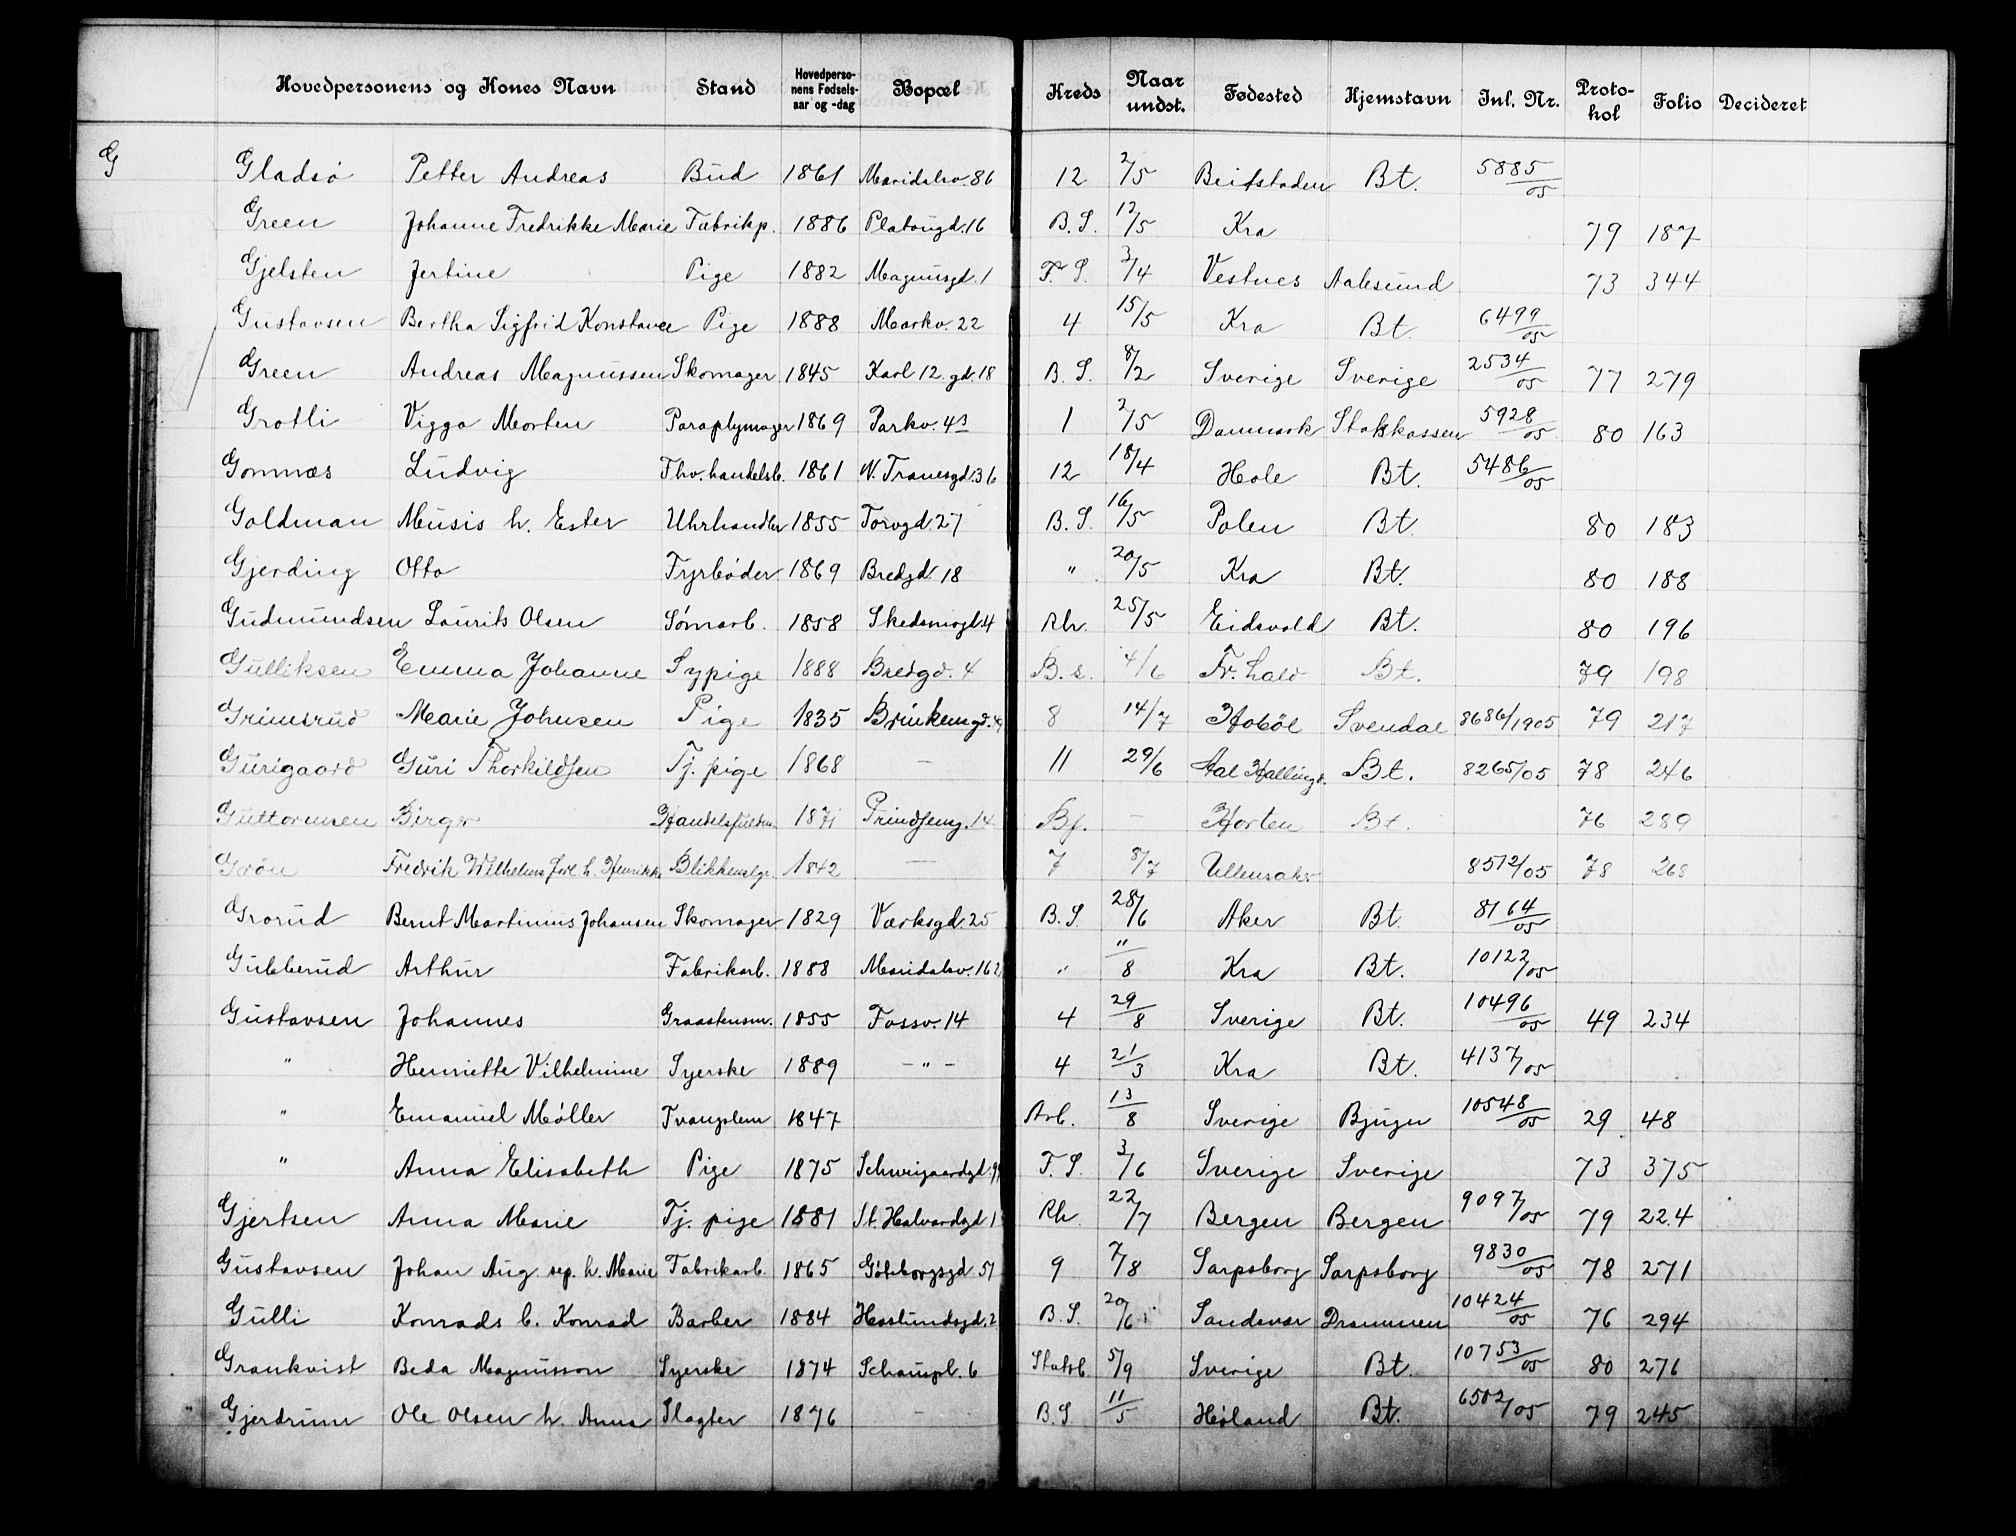 Hovedpersonens og Kones Navn Stand Hovedperso-nens Fødsels-aar og -dag Bopæl Kreds Naar undst. Fødested Hjemstavn Inl. Nr. Proto-kol Folio Decideret
G
Gladsø Petter Andreas Bud 1861 Maridalsv. 86 12 2/5 Beitstaden Bt. 5885/05
Green Johanne Fredrikke Marie Fabrikp. 1886 Platousgd. 16 B. S. 12/5 Kra 79 187
Gjelsten Jertine Pige 1882 Magnusgd. 1 F. S. 3/4 Vestnes Aalesund 73 344
Gustavsen Bertha Sigfrid Konstance Pige 1888 Markv. 22 4 15/5 Kra Bt. 6499/05
Green Andreas Magnussen Skomager 1845 Karl 12. gd. 18 B. S. 8/2 Sverige Sverige 2534/05 77 279
Grotli Viggo Morten Paraplymager 1869 Parkv. 4 1 2/5 Danmark Statskassen 5928/05 80 163
Gomnæs Ludvig Fhv. handelsb. 1861 N. Tranesgd. 36 12 18/4 Hole Bt. 5486/05
Goldman Musis h. Ester Uhrhandler 1855 Torvgd. 27 B. S. 16/5 Polen Bt. 80 183
Gjerding Otto Fyrbøder 1869 Bredgd. 18 " 20/5 Kra Bt. 80 188
Gudmundsen Laurits Olsen Sømarb. 1858 Skedsmogd. 4 Rh. 25/5 Eidsvold Bt. 80 196
Gulliksen Emma Johanne Sypige 1888 Bredgd. 4 B. s. 4/6 Fr. hald Bt. 79 198
Grimsrud Marie Johnsen Pige 1835 Brinkensgd. 8 14/7 Hobøl Svendal 8686/1905 79 217
Gurigaard Guri Thorkildsen Tj. pige 1868 — 11 29/6 Aal Hallingd. Bt. 8265/05 78 246
Guttormsen Birger 1871 Prindseng. 14 Bf. — Horten Bt. 76 289
Grøn Fredrik Wilhelms Jørl h. Henrikke Blikkenslgr. 1842 — 7 8/7 Ullensaker 8512/05 78 268
Grorud Bernt Martinius Johansen Skomager 1829 Værksgd. 25 B. S. 28/6 Aker Bt. 8164/05
Gubberud Arthur Fabrikarb. 1888 Maridalsv. 162 " 11/8 Kra Bt. 10122/05
Gustavsen Johannes Graastensm. 1855 Fossv. 14 4 29/8 Sverige Bt. 10496/05 49 234
" Henriette Vilhelmine Syerske 1889 — " — 4 21/3 Kra Bt. 4137/05
" Emanuel Møller Tvangslem 1847 Arb. 13/8 Sverige Bjugn 10548/05 29 48
" Anna Elisabeth Pige 1875 Schweigaardgd. F. S. 3/6 Sverige Sverige 73 375
Gjertsen Anna Marie Tj. pige 1881 St. Halvardsgd 1 Rh. 22/7 Bergen Bergen 9097/05 79 224
Gustavsen Johan Aug. sep. h. Marie Fabrikarb. 1865 Gøteborgsgd 51 9 7/8 Sarpsborg Sarpsborg 9830/05 78 271
Gulli Konrads b. Konrad Barber 1884 Haslundsgd. 2 B. S. 20/6 Sandsvær Drammen 10424/05 76 294
Grankvist Beda Magnusson Syerske 1874 Schouspl. 6 Statsb 5/9 Sverige Bt. 10753/05 80 276
Gjerdrum Ole Olsen h. Anna Slagter 1876 — B. S. 11/5 Høland Bt. 6502/05 79 245